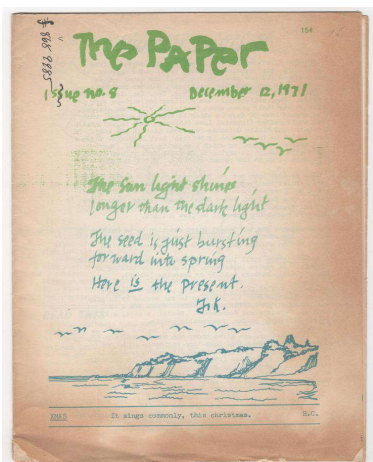 15¢
The PAPer
issue no. 8 December 12, 1971
The Sun light shines
longer than the dark light
The seed is just bursting
forward into spring
Here is the present.
XMAS It sings commonly, this christmas. N.C.